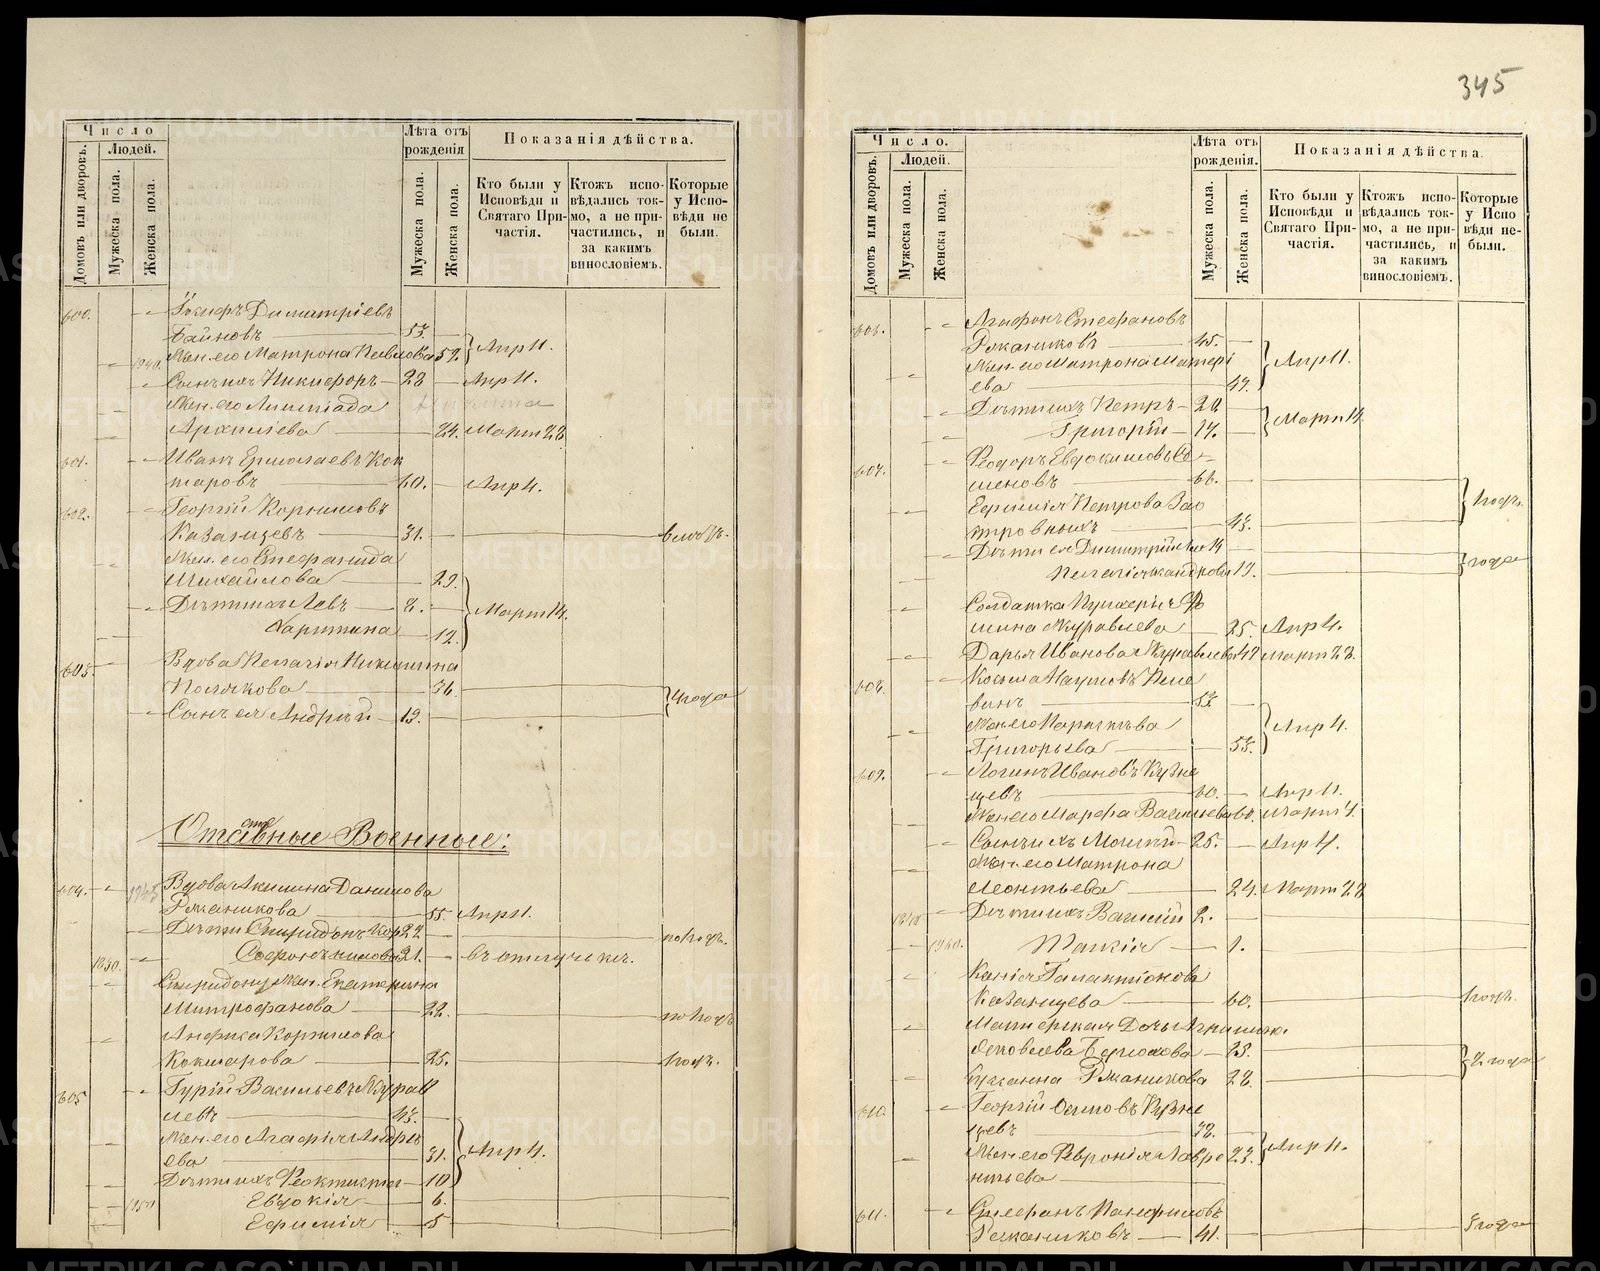 345
Число
Людей.
Домовъ или дворовъ.
Мужеска пола.
Женска пола.
Лѣта отъ рожденія
Мужеска пола.
Женска пола.
Показанія дѣйства.
Кто были у Исповѣди и Святаго Причастія.
Ктожъ исповѣдались токмо, а не причастились, и за какимъ винословіемъ.
Которые у Исповѣди не были.
600. Іосифъ Димитріевъ
Байновъ 53
Жен. его Матрона Павлова 52. Апр 11.
Сынъ ихъ Никифоръ 28 Апр 11.
Жен. его Лимпіада
Архипіева 24. Март 28
601. Иванъ Ермолаевъ Кок
шаровъ 60. Апр 4.
602. Георгій Корниловъ
Казанцевъ 31.
Жен. его Стефанида
Михайлова 29.
Дѣти ихъ Левъ 8. Март 14.
Харитина 12.
603. Вдова Пелагія Никитина
Полякова 36.
Сынъ ея Андрей 19. 4 года
Отставные Военные:
604. Вдова Акилина Данилова
Ржаникова 55. Апр 11.
Дѣти Спиридонъ Кор 22
Софонъ 21. въ отлучкѣ.
1850.
Спиридону Жен. Екатерина
Митрофанова 22.
Анфиса Корнилова
Кокшарова 25. 1 годъ.
605 Гурій Васильевъ Журав
левъ 43.
Жен. его Агафія Андре
ева 31. Апр 4.
Дѣти ихъ Феоктиста 10
Евдокія 6.
Ефимія 5
Число.
Людей.
Домовъ или дворовъ.
Мужеска пола.
Женска пола.
Лѣта отъ рожденія.
Мужеска пола.
Женска пола.
Показанія дѣйства.
Кто были у Исповѣди и Святаго Причастія.
Ктожъ исповѣдались токмо, а не причастились, и за какимъ винословіемъ.
Которые у Исповѣди небыли.
606. Агафонъ Стефановъ
Ржаниковъ 45.
Жен. его Матрона Матѳѣ
ева 49. Апр 11.
Дѣти ихъ Петръ 20.
Григорій 17. Март 14
607. Ѳеодоръ Евдокимовъ Се
меновъ 66.
Ефимія Петрова Зао
стровныхъ 43. 1 годъ.
Дѣти ея Димитрій 14
Пелагія 19. года
Солдатка Пулхерія Ѳо
мина Журавлева 25. Апр 4.
Дарья Иванова Журавлева 47 Март 28.
608. Косьма Наумовъ Пеле
винъ 53
Жен. его Параскева
Григорьева 53. Апр 4.
609. Логинъ Ивановъ Кузне
цевъ 60. Апр 11.
Жен. его Марфа Васильева 60. Март 4.
Сынъ ихъ Моисей 25. Апр 4.
Жен. его Матрона
Леонтьева 24. Март 28
Дѣти ихъ Василій 2.
Таисія 1.
Ксенія Галактіонова
Казанцева 60. 1 годъ.
Яковлева
Сузанна Ржаникова 28. 2 года
610. Георгій Осиповъ Кузне
цевъ 32.
Жен. его Февронія Лавре 23. Апр 11.
нтьева
611. Стефанъ Панфиловъ
Ржаниковъ 41. года